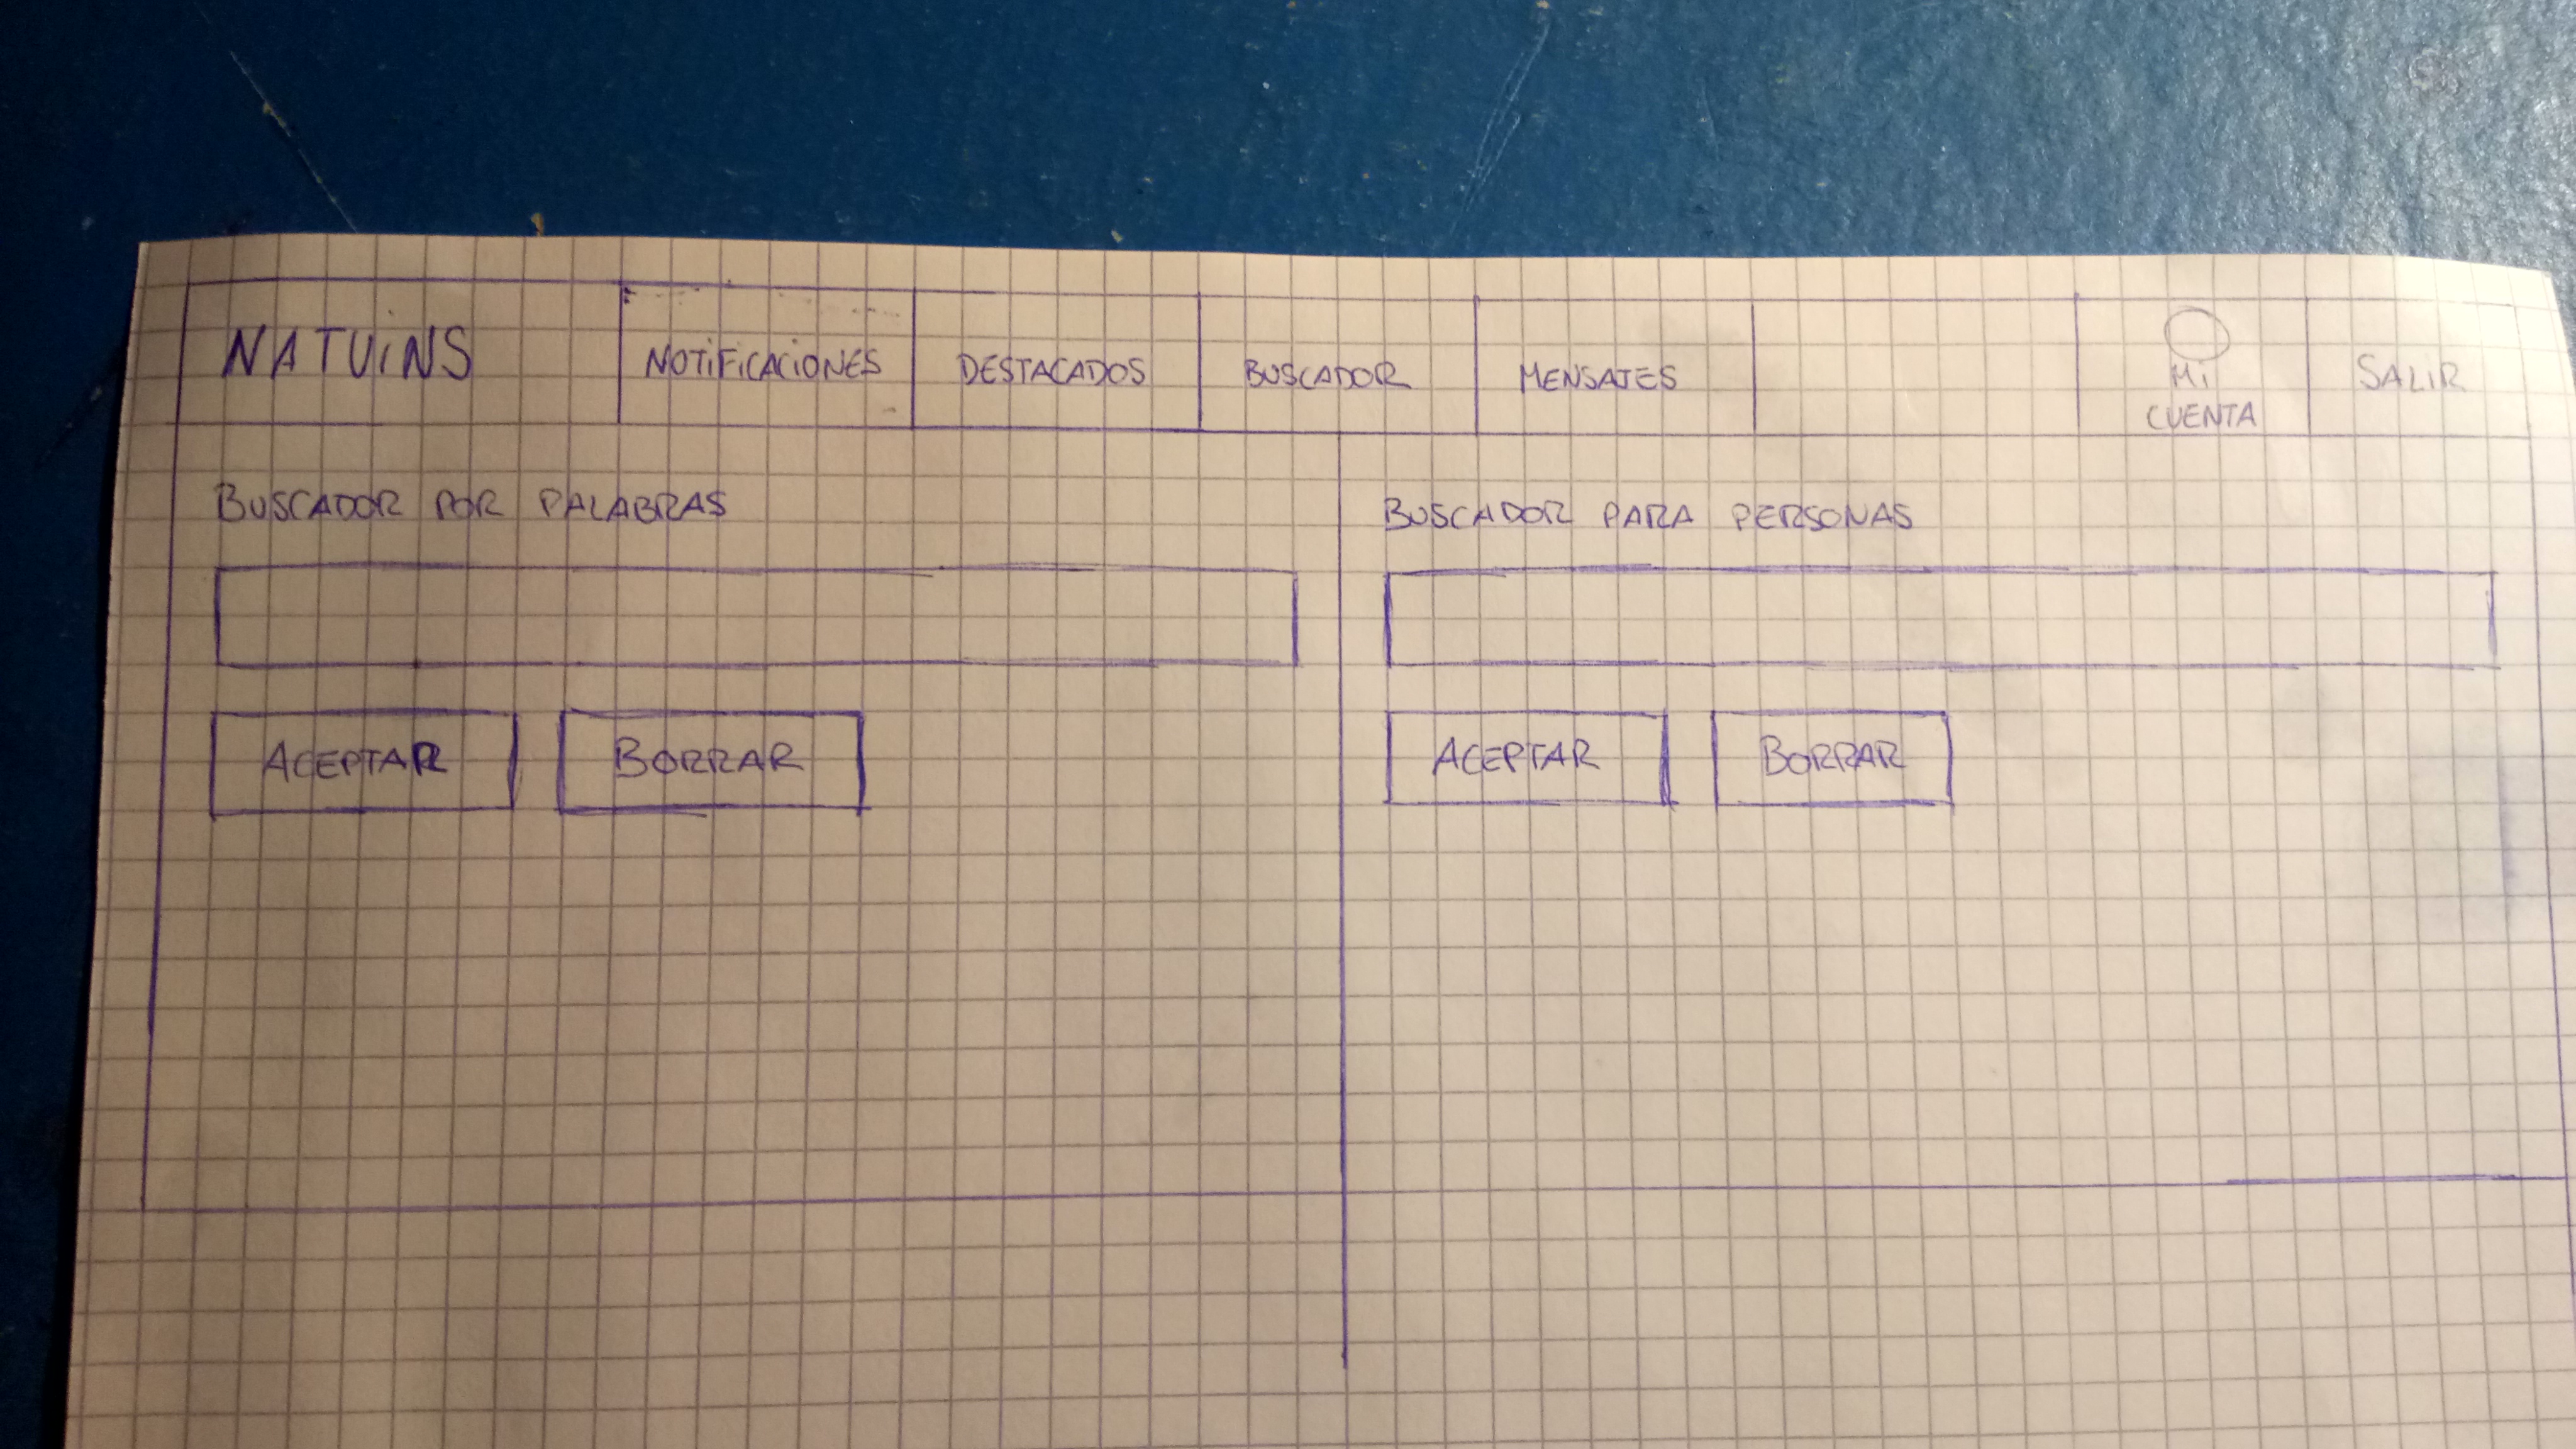 NATUiNS
NOTiFiCACiONES
DESTACADOS
BUSCADOR
MENSAJES
Mi
CUENTA
SALIR
BUSCADOR POR PALABRAS
BUSCADOR PARA PERSONAS
ACEPTAR
BORRAR
ACEPTAR
BORRAR